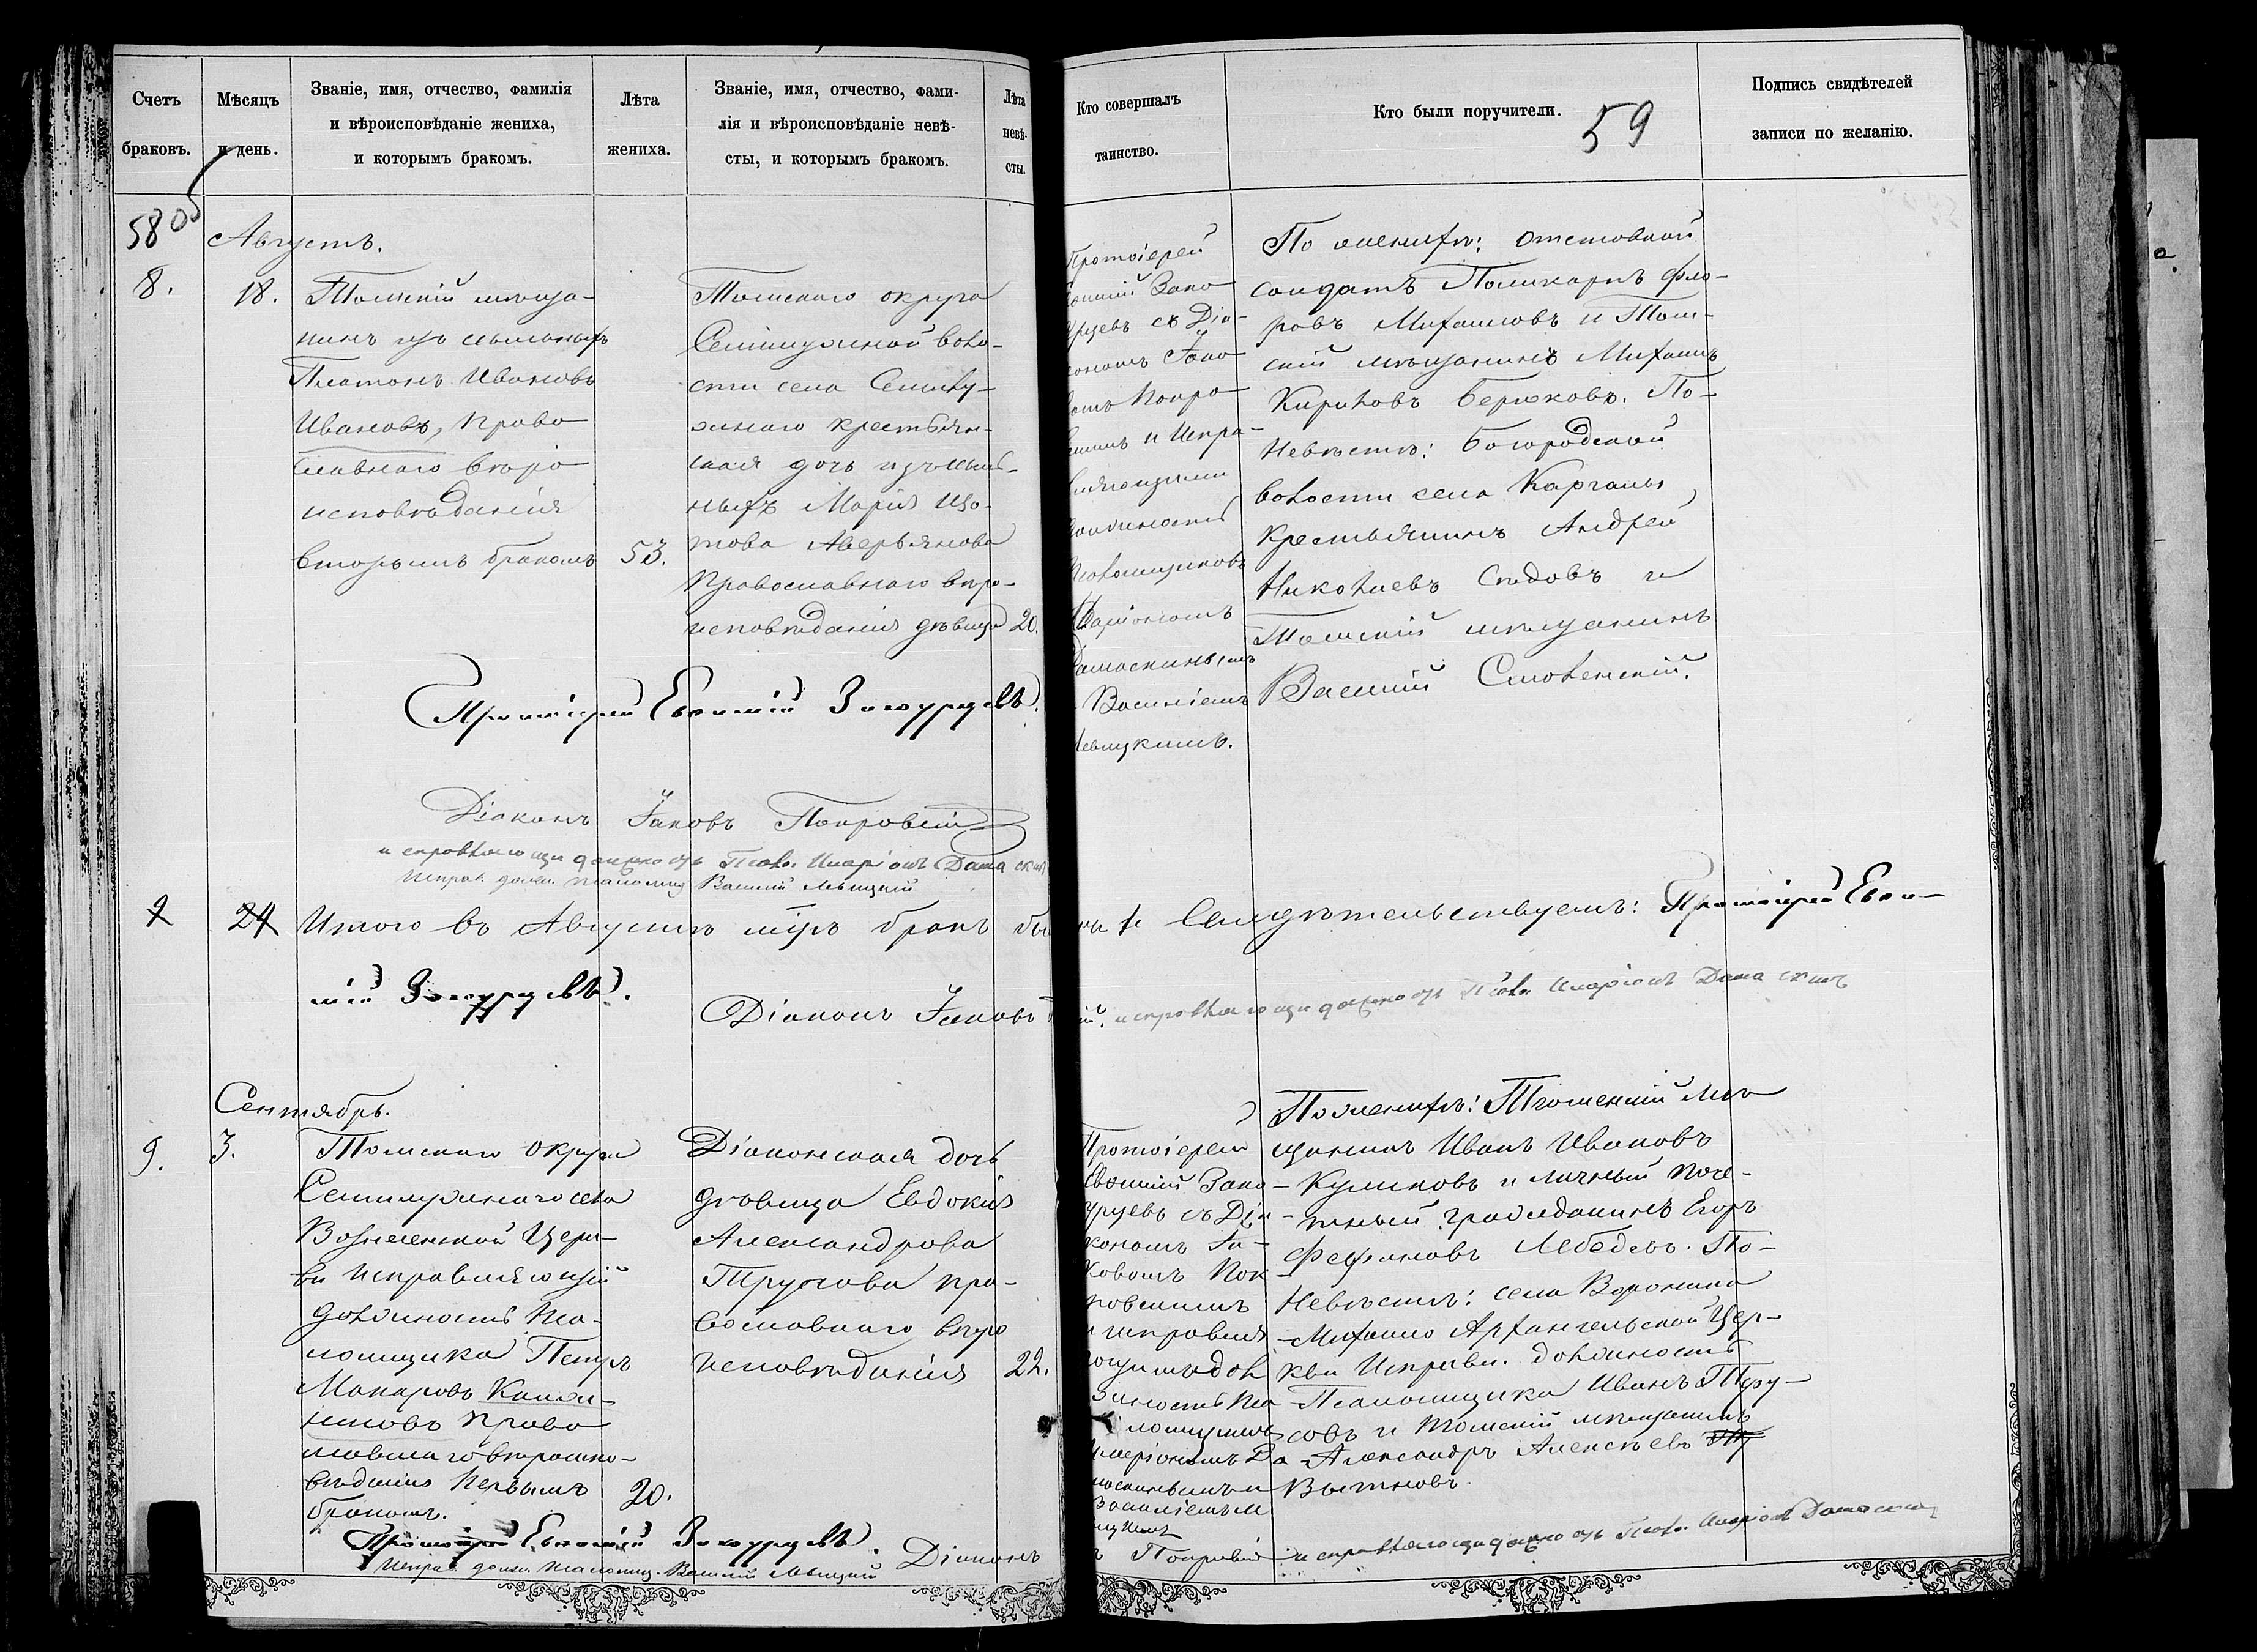 Счетъ
браковъ.
Мѣсяцъ
и день.
Званіе, имя, отчество, фамилія
и вѣроисповѣданіе жениха,
и которымъ бракомъ.
Лѣта
жениха.
Званіе, имя, отчество, фами-
лія и вѣроисповѣданіе невѣ-
сты, и которымъ бракомъ.
Лѣта
невѣ-
сты.
Кто совершалъ
таинство.
Кто были поручители.
59
Подпись свидѣтелей
записи по желанію.
580
Августъ.
8.
18.
Томскій мѣща-
нинъ изъ ссыльныхъ
Платонъ Ивановъ
Ивановъ, право
славнаго вѣро
исповѣданія
вторымъ бракомъ
53.
Томскаго округа
Семилужной воло-
сти села Семилу-
жнаго крестьян-
ская дочь изъ ссыль-
ныхъ Марія Изо-
това Аверьянова
Православнаго вѣро-
исповѣданія дѣвица
20.
Протоіерей
Зако
урцевъ съ Діа-
кономъ Іако
вомъ Покро
вскимъ и Испра-
вляющими
должность
Псаломщиковъ
Иларіономъ
Дамаскинымъ
Василіемъ
Левицкимъ.
По женихѣ: отставной
солдатъ Поликарпъ Фло-
ровъ Михаиловъ и Том-
скій мѣщанинъ Михаилъ
Кириловъ Берюковъ. По-
Невѣстѣ: Богородской
волости села Каргалы
крестьянинъ Андрей
Николаевъ Сѣдовъ и
Томскій мѣщанинъ
Василій Смоленскій.
Протоіерей Евѳимій Закоурцевъ.
Діаконъ Іаковъ Покровскій
исправляющи должность Псало. Иларіонъ Дамаскинъ
Исправ. должн. псаломщ. Василій Левицкій
24
Итого въ Августѣ мѣсяцѣ бракъ бы
1. Свидѣтельствуемъ: Протоіерей Евѳи-
мій Закоурцевъ.
Діаконъ Іаковъ
исправляющи должность Псало. Иларіонъ Дамаскинъ
Сентябрь.
9.
3.
Томскаго округа
Семилужнаго села
Вознесенской Церк-
ви исправляющій
должность Пса-
ломщика Петръ
Макаровъ
право
славнаго вѣроиспо-
вѣданія первымъ
бракомъ.
20.
Діаконская дочь
дѣвица Евдокія
Александрова
Трусова пра-
вославнаго вѣро
исповѣданія
22.
Протоіереи
Евѳимій Зако-
урцевъ съ Діа-
кономъ Іа-
ковомъ Пок-
ровскимъ
и исправля-
ющими дол
жность Пса
ломщиковъ
Иларіономъ Да
маскинымъ и
Василіемъ
По женихѣ: Томскій мѣ
щанинъ Иванъ Ивановъ
Куликовъ и личный поче-
тный гражданинъ Егоръ
Лебедевъ. По-
Невѣстѣ: села Воронина
Михаило Архангельской Цер-
кви Исправл. должность
Псаломщика Иванъ Тру-
совъ и Томскій мѣщанинъ
Александръ Алексѣевъ
Вытновъ.
Протоіерей Евѳимій Закоурцевъ. Діаконъ
Покровскій исправляющи должность Псало. Иларіонъ Дамаскинъ
Исправ. должн. псаломщ. Василій Левицкій